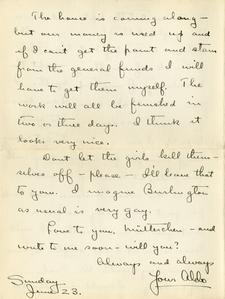 The house is coming along —
but our money is used up and
if I can't get the paint and stain
from the general funds I will
have to get them myself. The
work will all be finished in
two or three days. I think it
looks very nice.
Don't let the girls kill them-
selves off — please — I'll leave that
to you. I imagine Burlington
as usual is very gay.
Love to you, — and
write to me soon — will you?
Always and always
Your Aldo
Sunday
June 23.